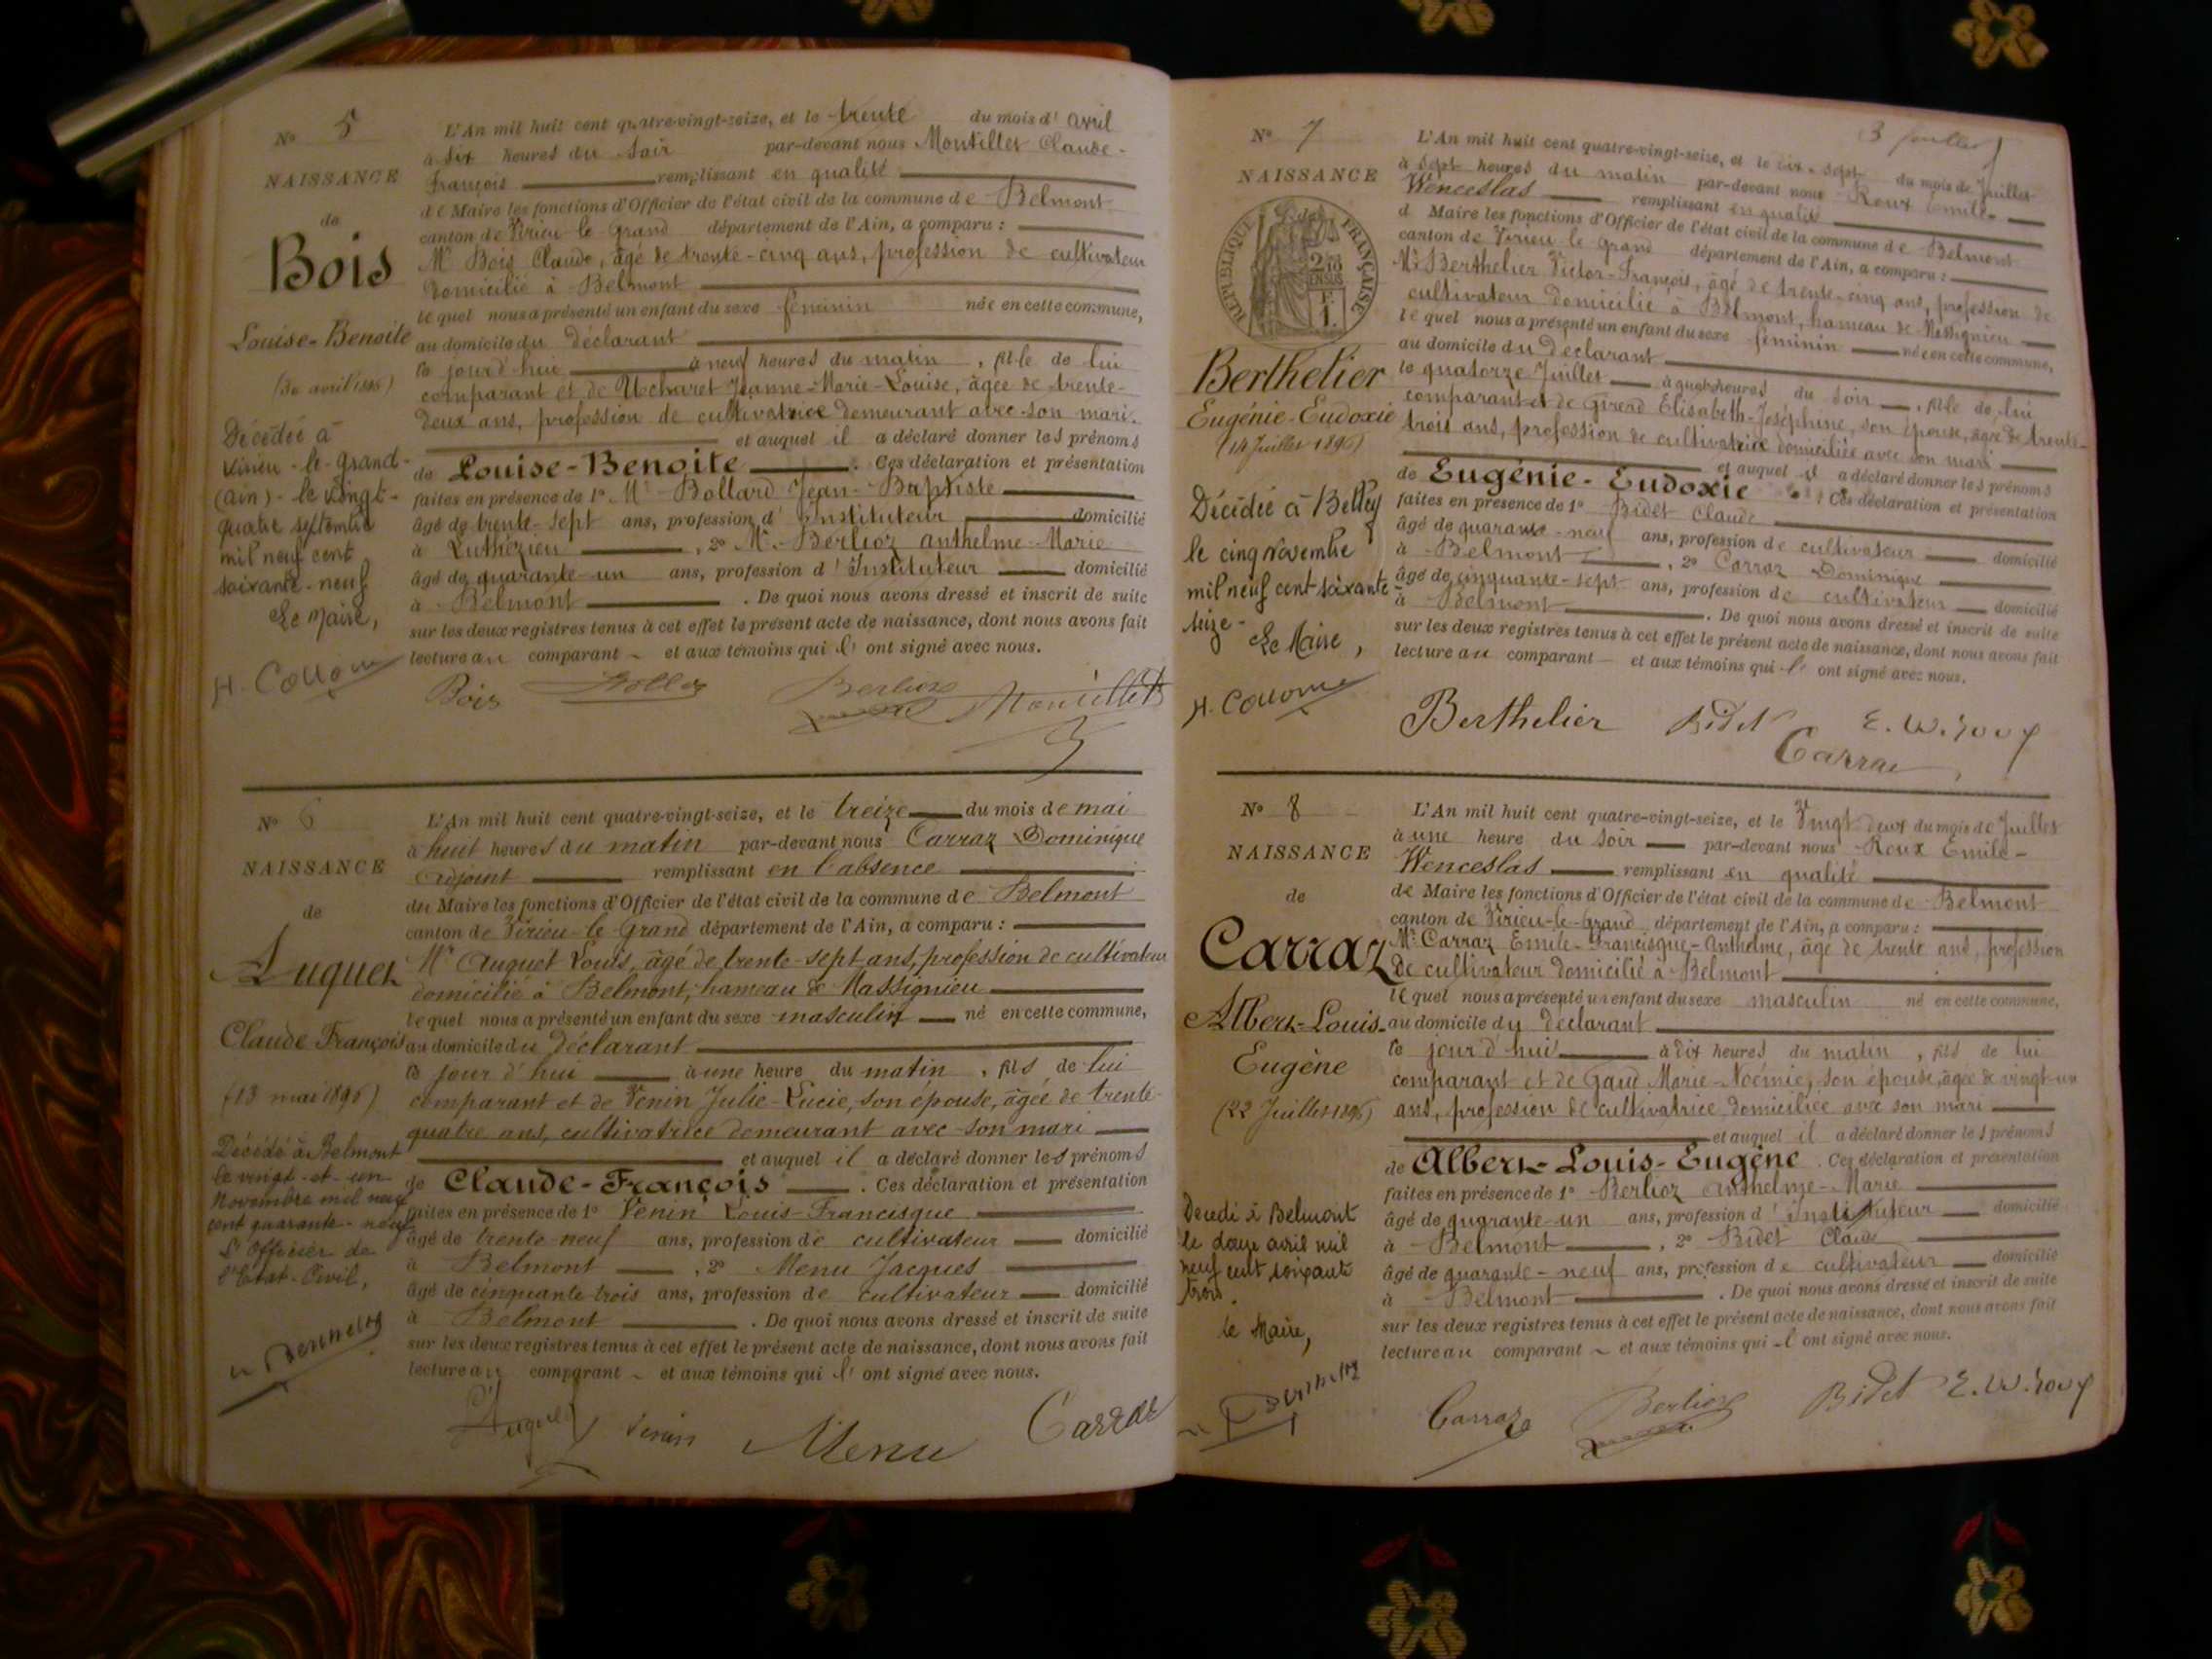 N° 5
NAISSANCE
de
Bois
Louise-Benoite
(30 avril 1896)
Décédée à
Virieu-le-Grand-
(Ain)- le vingt-
quatre septembre
mil neuf cent
soixante-neuf
Le Maire,
L'An mil huit cent quatre-vingt-seize, et le trente du mois d'avril
à six heures du soir par-devant nous Montillet Claude-
François remplissant en qualité
de Maire les fonctions d'Officier de l'état civil de la commune de Belmont
canton de Virieu-le-Grand département de l'Ain, a comparu :
Mr Bois Claude, âgé de trente-cinq ans, profession de cultivateur
domicilié à Belmont
lequel nous a présenté un enfant du sexe féminin née en cette commune,
au domicile du déclarant
le jourd'hui à neuf heures du matin, fille de lui
comparant et de Jeanne-Marie-Louise, âgée de trente-
deux ans, profession de cultivatrice demeurant avec son mari.
et auquel il a déclaré donner les prénoms
de Louise-Benoite. Ces déclaration et présentation
faites en présence de 1° Mr Bollard Jean-Baptiste
âgé de trente-sept ans, profession d'Instituteur domicilié
à Luthézieu, 2° Mr Berlioz Anthelme-Marie
âgé de quarante-un ans, profession d'Instituteur domicilié
à Belmont. De quoi nous avons dressé et inscrit de suite
sur les deux registres tenus à cet effet le présent acte de naissance, dont nous avons fait
lecture au comparant et aux témoins qui l'ont signé avec nous.
Bois Berlioz Montillet
N° 6
NAISSANCE
de
Auguet
Claude François
(13 mai 1896)
Décédé à Belmont
le vingt-et-un
Novembre mil neuf
cent quarante-neuf
L'Officier de
l'Etat-Civil,
L'An mil huit cent quatre-vingt-seize, et le treize du mois de mai
à huit heures du matin par-devant nous Carraz Dominique
adjoint remplissant en l'absence
du Maire les fonctions d'Officier de l'état civil de la commune de Belmont
canton de Virieu-le-Grand département de l'Ain, a comparu :
Mr Auguet Louis, âgé de trente-sept ans, profession de cultivateur
domicilié à Belmont, hameau de Massignieu
lequel nous a présenté un enfant du sexe masculin né en cette commune,
au domicile du déclarant
le jour d'hui à une heure du matin, fils de lui
comparant et de Venin Julie-Lucie, son épouse, âgée de trente-
quatre ans, cultivatrice demeurant avec son mari
et auquel il a déclaré donner les prénoms
de Claude-François. Ces déclaration et présentation
faites en présence de 1° Venin Louis-Francisque
âgé de trente-neuf ans, profession de cultivateur domicilié
à Belmont, 2° Menu Jacques
âgé de cinquante-trois ans, profession de cultivateur domicilié
à Belmont. De quoi nous avons dressé et inscrit de suite
sur les deux registres tenus à cet effet le présent acte de naissance, dont nous avons fait
lecture au comparant et aux témoins qui l'ont signé avec nous.
Auguet Venin Menu Carraz
N° 7
NAISSANCE
RÉPUBLIQUE FRANÇAISE
Berthelier
Eugénie-Eudoxie
(14 Juillet 1896)
Décédée à Belley
le cinq novembre
mil neuf cent soixante
seize-
Le Maire,
L'An mil huit cent quatre-vingt-seize, et le dix-sept du mois de Juillet
à sept heures du matin par-devant nous Roux Emile-
Wenceslas remplissant en qualité
de Maire les fonctions d'Officier de l'état civil de la commune de Belmont
canton de Virieu le Grand département de l'Ain, a comparu :
Mr Berthelier Victor-François, âgé de trente-cinq ans, profession de
cultivateur domicilié à Belmont, hameau de Massignieu
lequel nous a présenté un enfant du sexe féminin née en cette commune,
au domicile du déclarant
le quatorze Juillet à quatre heures du soir, fille de lui
comparant et de Girend Elisabeth-Joséphine, son épouse, âgée de trente-
trois ans, profession de cultivatrice domiciliée avec son mari
et auquel il a déclaré donner les prénoms
de Eugénie-Eudoxie. Ces déclaration et présentation
faites en présence de 1° Bidet Claude
âgé de quarante-neuf ans, profession de cultivateur domicilié
à Belmont, 2° Carraz Dominique
âgé de cinquante-sept ans, profession de cultivateur domicilié
à Belmont. De quoi nous avons dressé et inscrit de suite
sur les deux registres tenus à cet effet le présent acte de naissance, dont nous avons fait
lecture au comparant et aux témoins qui l'ont signé avec nous.
Berthelier Bidet E. W. Roux
Carraz
N° 8
NAISSANCE
de
Carraz
Albert-Louis-
Eugène
(22 Juillet 1896)
Décédé à Belmont
le douze avril mil
neuf cent soixante
trois.
le Maire,
L'An mil huit cent quatre-vingt-seize, et le Vingt-deux du mois de Juillet
à une heure du soir par-devant nous Roux Emile-
Wenceslas remplissant en qualité
de Maire les fonctions d'Officier de l'état civil de la commune de Belmont
canton de Virieu-le-Grand département de l'Ain, a comparu :
Mr Carraz Emile-Francisque-Anthelme, âgé de trente ans, profession
de cultivateur domicilié à Belmont
lequel nous a présenté un enfant du sexe masculin né en cette commune,
au domicile du déclarant
le jour d'hui à dix heures du matin, fils de lui
comparant et de Gaud Marie-Noémie, son épouse, âgée de vingt-un
ans, profession de cultivatrice domiciliée avec son mari
et auquel il a déclaré donner les prénoms
de Albert-Louis-Eugène. Ces déclaration et présentation
faites en présence de 1° Berlioz Anthelme-Marie
âgé de quarante-un ans, profession d'Instituteur domicilié
à Belmont, 2° Bidet Claude
âgé de quarante-neuf ans, profession de cultivateur domicilié
à Belmont. De quoi nous avons dressé et inscrit de suite
sur les deux registres tenus à cet effet le présent acte de naissance, dont nous avons fait
lecture au comparant et aux témoins qui l'ont signé avec nous.
Carraz Berlioz Bidet E. W. Roux